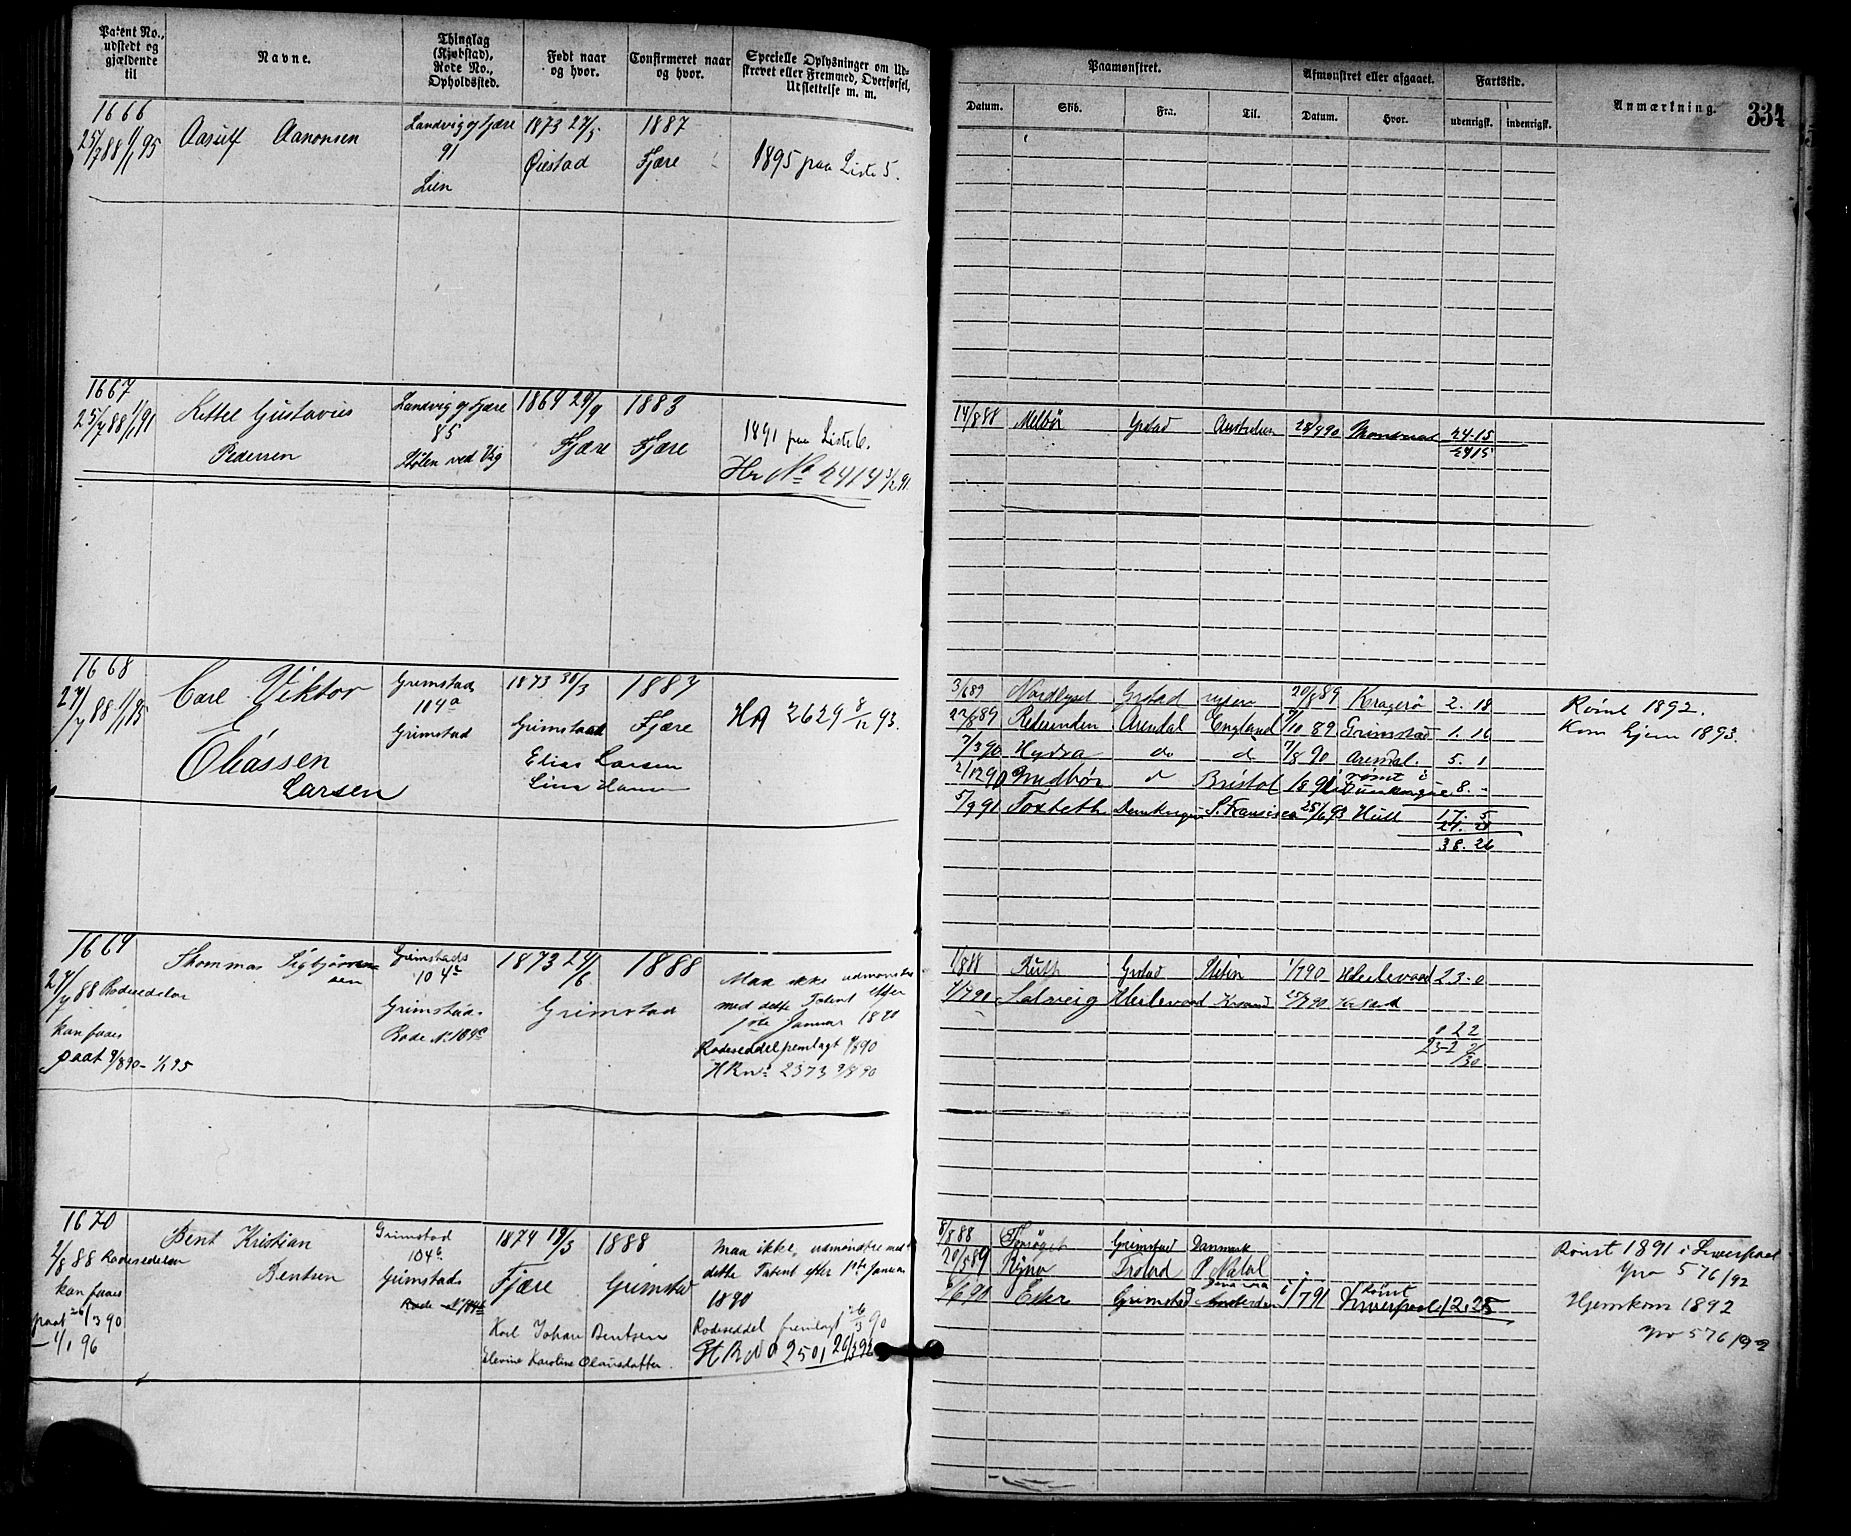 334
Patent No., udstedt og gjældende til
Navne.
Thinglag (Kjøbstad), Rode No., Opholdssted.
Født naar og hvor.
Confirmeret naar og hvor.
Specielle Oplysninger om Udskrevet eller Fremmed, Overførsel, Udslettelse m. m.
Paamønstret.
Afmønstret eller afgaaet.
Fartstid.
Anmærkning.
Datum. Skib. Fra. Til. Datum. Hvor. udenrigsk. indenrigsk.
1666
25/7 88 1/1 95
Aasulf Aanonsen
Landvig og Fjære
91
Lien
1873 27/5
Øiestad
1887
Fjære
1895 paa Liste 5.
1667
25/7 88 1/1 91
Kittel Gustavius
Pedersen
Landvig og Fjære
85
Stølen ved Vig
1869 29/9
Fjære
1883
Fjære
1891 paa Liste 6.
Hr No 2414 3/2 91.
14/8 88 Melbør Grstad Australien 28/8 90 24-15
2415
1668
27/7 88 1/1 95
Carl Viktor
Eliassen
Larsen
Grimstads
104a
Grimstad
1873 30/3
Grimstad
1887
Fjære
Elias Larsen
HR 2629 8/12 93.
3/6 89 Nordlyset Grstad 20/6 89 Kragerø 2. 18
22/8 89 Arendal England 7/10 89 Grimstad 1. 16
7/3 90 Hydra do d 7/8 90 Arendal. 5. 1
2/12 90 d Bristol rømt i 8. -
5/9 91 Foxteth S. Fransisco 25/6 93 Hull 17. 5
38. 26
Rømt 1892.
Kom hjem 1893
1669
27/7 88 Rodesedelen
kan faaes
paat 9/8 90 - 1/1 95
Thommas Sigbjørnsen
Grimstads
104c
Grimstads
Rode No 104c
1873 24/6
1888
Grimstad
Maa ikke udmønstres
med dette Patent efter
1ste Januar 1890
Rodeseddel fremlagt 9/8 90
HR no 2373 9/8 90
1/8 88 Ruth Grstad Stetin 1/7 90 23-0
Solveig
1 22
1670
2/8 88 Rodesedelen
kan faaes
paat 26/3 90
- 1/1 96
Bent Kristian
Bentsen
Grimstad
104b
Grimstads
Rode No 104b
1874 19/3
Fjære
1888
Grimstad
Karl Johan Bentsen
Elevine Karoline Olausdatter.
Maa ikke udmønstres med
dette Patent efter 1ste Januar
1890
Rodeseddel fremlagt 26/3 90
HR No 2501 26/3 92
8/8 88 Forsøget Grimstad Danmark
20/5 89 P. Natal
6/6 90 Ester Grimstad 6/7 91 Rømt Liverpool 12.25
Rømt 1891 i Liverpool
Jno 576/92
Hjemkom 1892
Jno 576/92